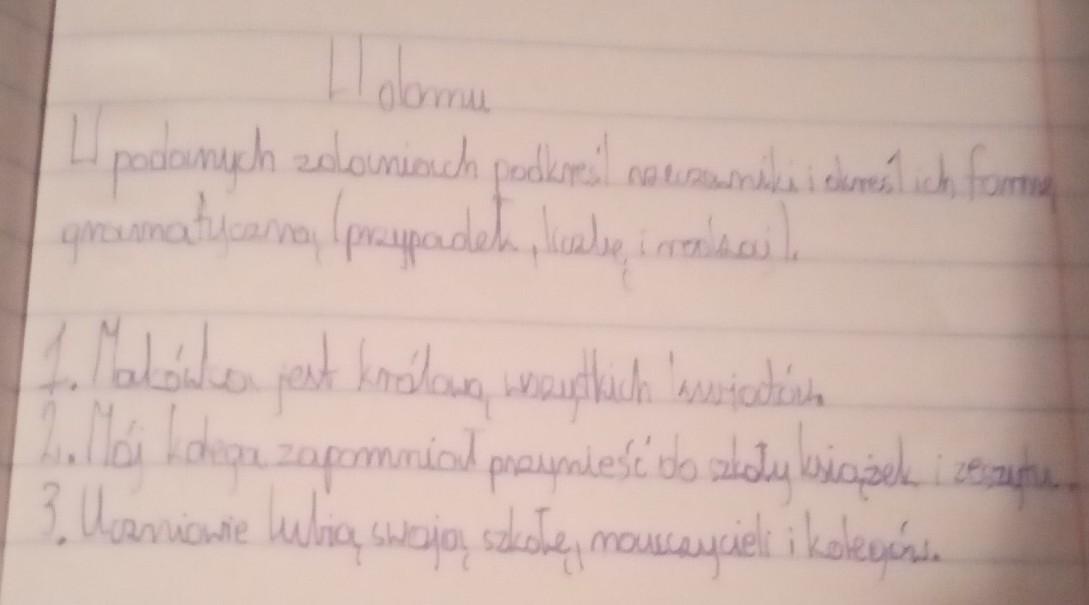 W domu
W podanych zdaniach podkreśl rzeczowniki i określ ich formę
gramatyczną (przypadek, liczbę i rodzaj).
1. Makówka jest królową wszystkich kwiatów.
2. Mój kolega zapomniał przynieść do szkoły książek i zeszytu.
3. Uczniowie lubią swoją szkołę, nauczycieli i kolegów.